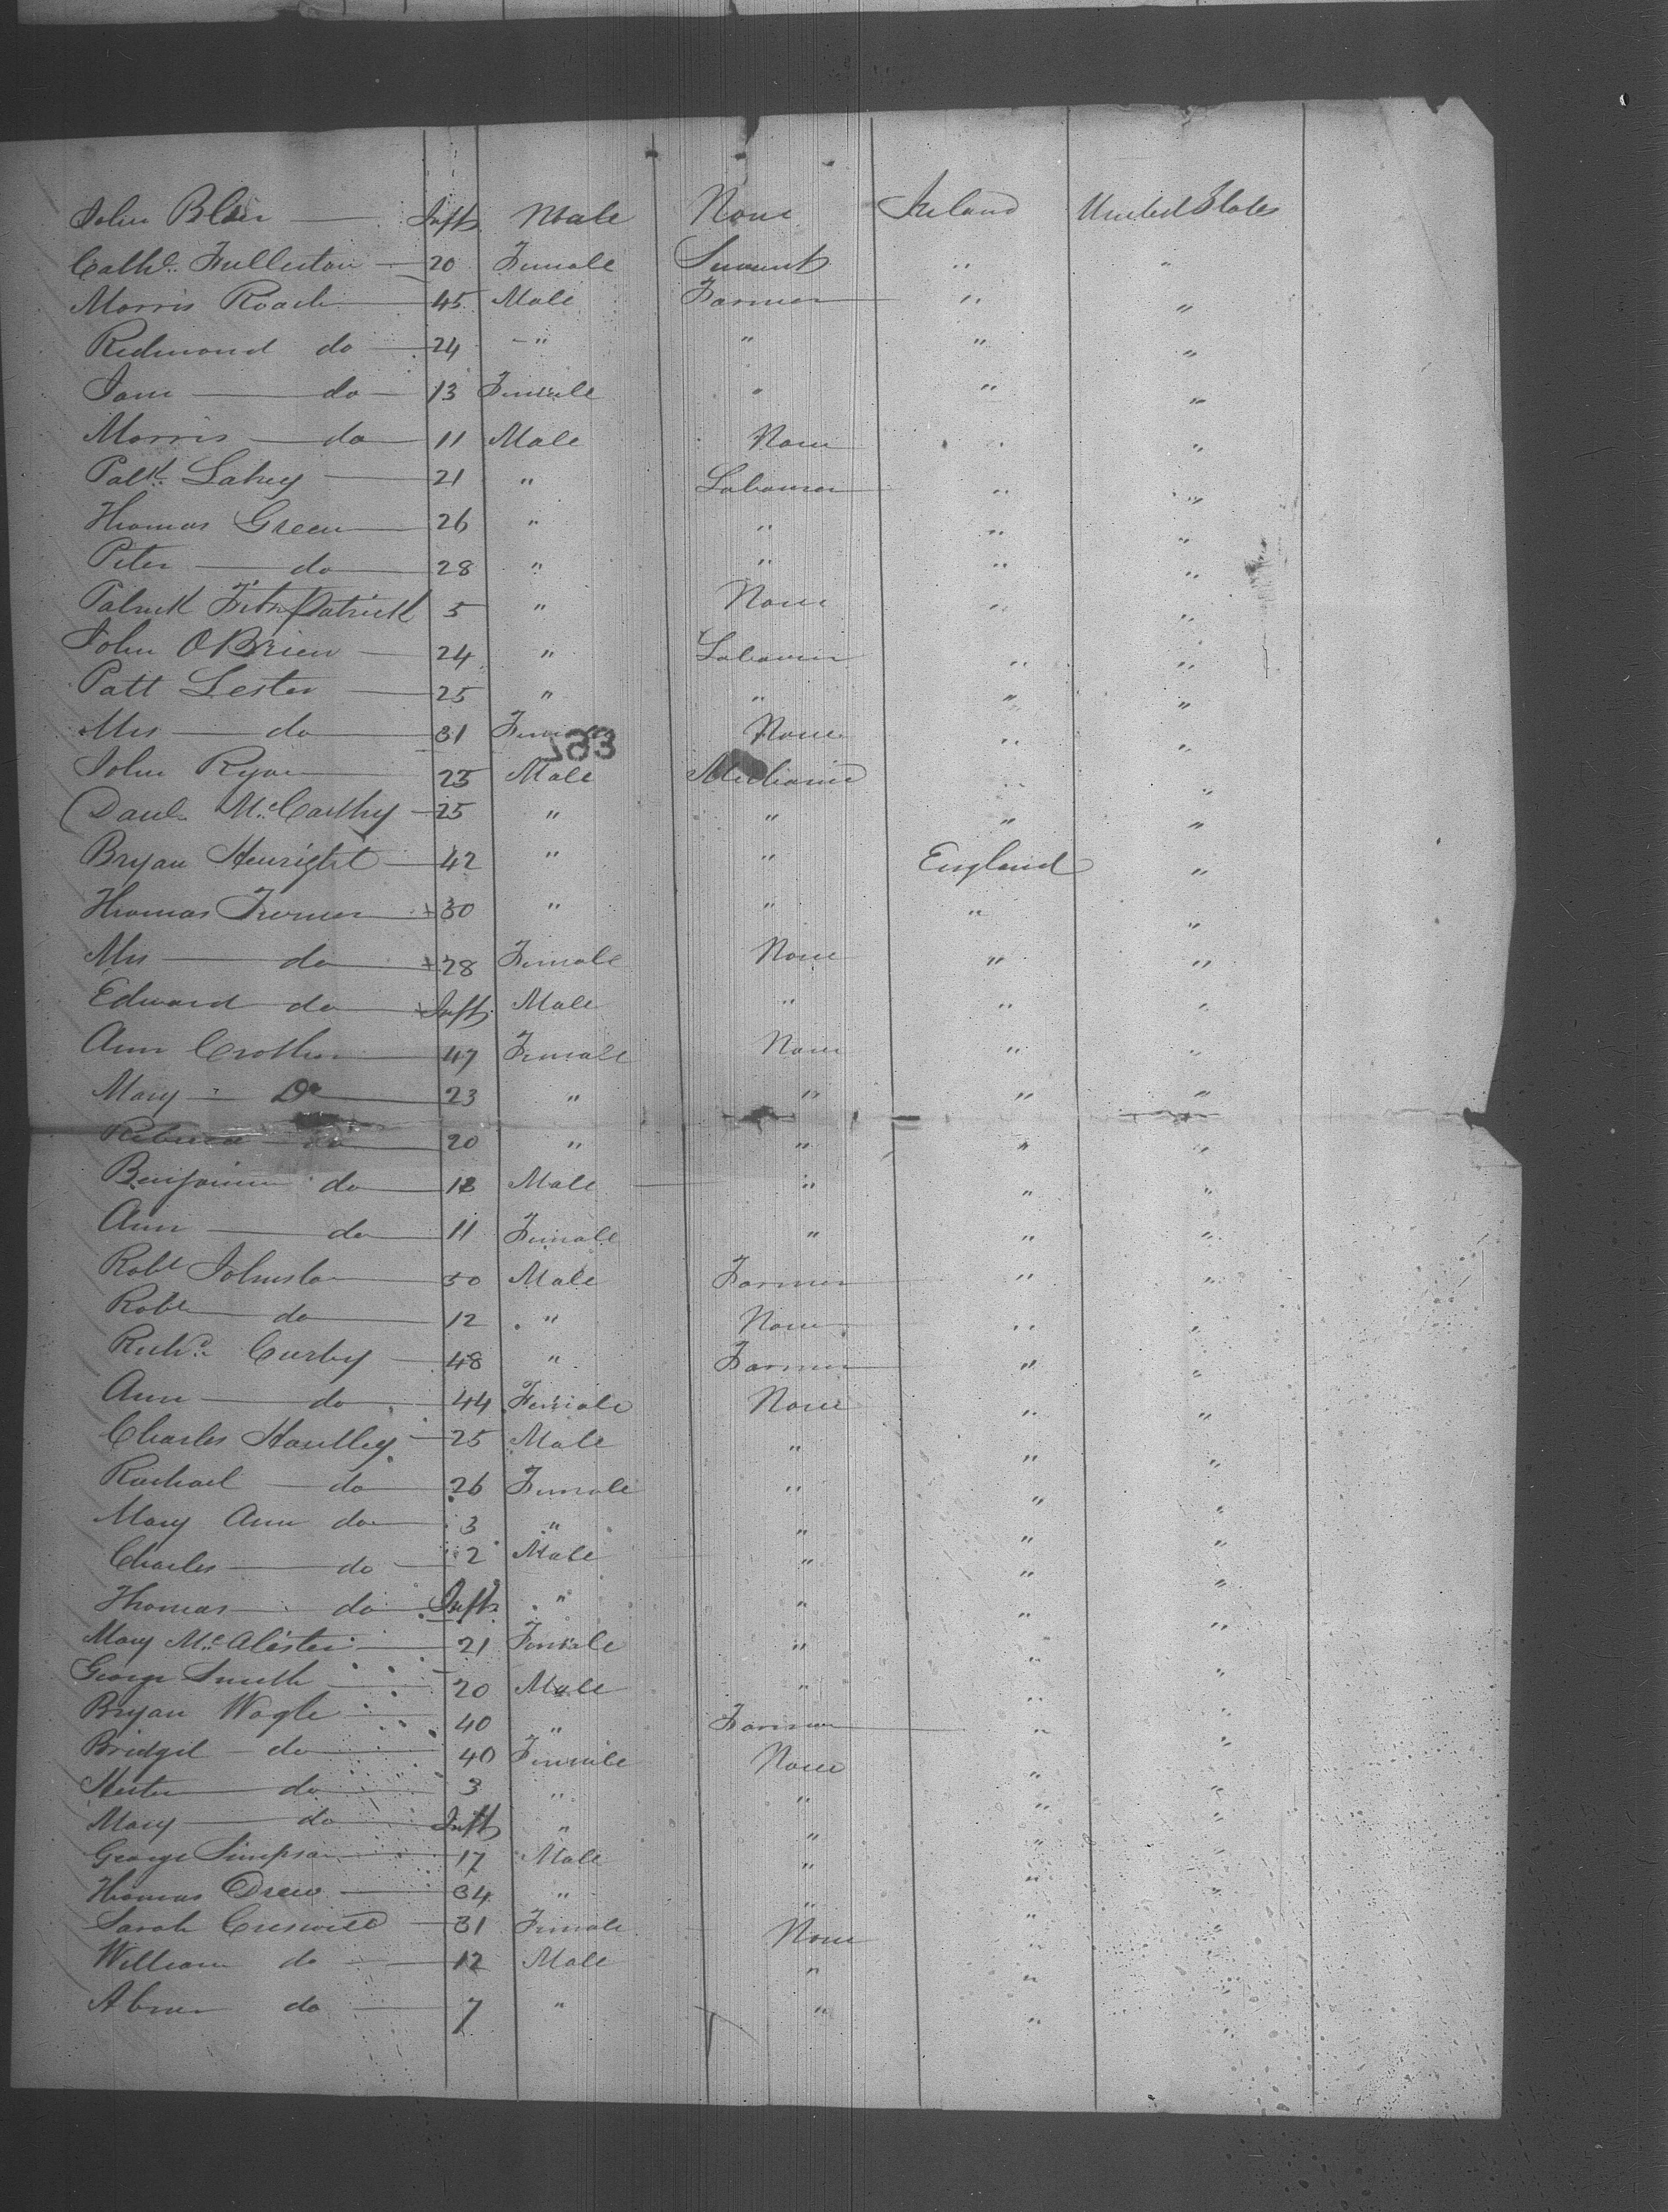 John Blair Inft Male None Ireland United States
Cathe. Fullerton 20 Female Servant " "
Morris Roach 45 Male Farmer " "
Redmond do 24 " " " "
Jane do 13 Female " " "
Morris do 11 Male None " "
Patk. Lahey 21 " Labourer " "
Thomas Green 26 " " " "
Peter do 28 " " " "
Patrick FitzPatrick 5 " None " "
John OBrien 24 " Labourer " "
Patt Lester 25 " " " "
Mrs do 31 Female None " "
John Ryan 25 Male Mechanic " "
Danl. McCarthy 25 " " " "
Bryan Henright 42 " " England "
Thomas Turner 30 " " " "
Mrs do 28 Female None " "
Edward do Inft Male " " "
Ann Crother 47 Female None " "
Mary Do 23 " " " "
Rebecca do 20 " " " "
Benjamin do 18 Male " " "
Ann do 11 Female " " "
Robt Johnston 50 Male Farmer " "
Robt do 12 " None " "
Richd. Curby 48 " Farmer " "
Ann do 44 Female None " "
Charles Hartley 25 Male " " "
Rachael do 26 Female " " "
Mary Ann do 3 " " " "
Charles do 2 Male " " "
Thomas do Inft " " " "
Mary McAlister 21 Female " " "
George Smith 20 Male " " "
Bryan Wogle 40 " Farmer " "
Bridget do 40 Female None " "
Hester do 3 " " " "
Mary do Inft " " " "
George Simpson 17 Male " " "
Thomas Drew 34 " " " "
Sarah Creswell 31 Female None " "
William do 12 Male " " "
Abner do 7 " " " "